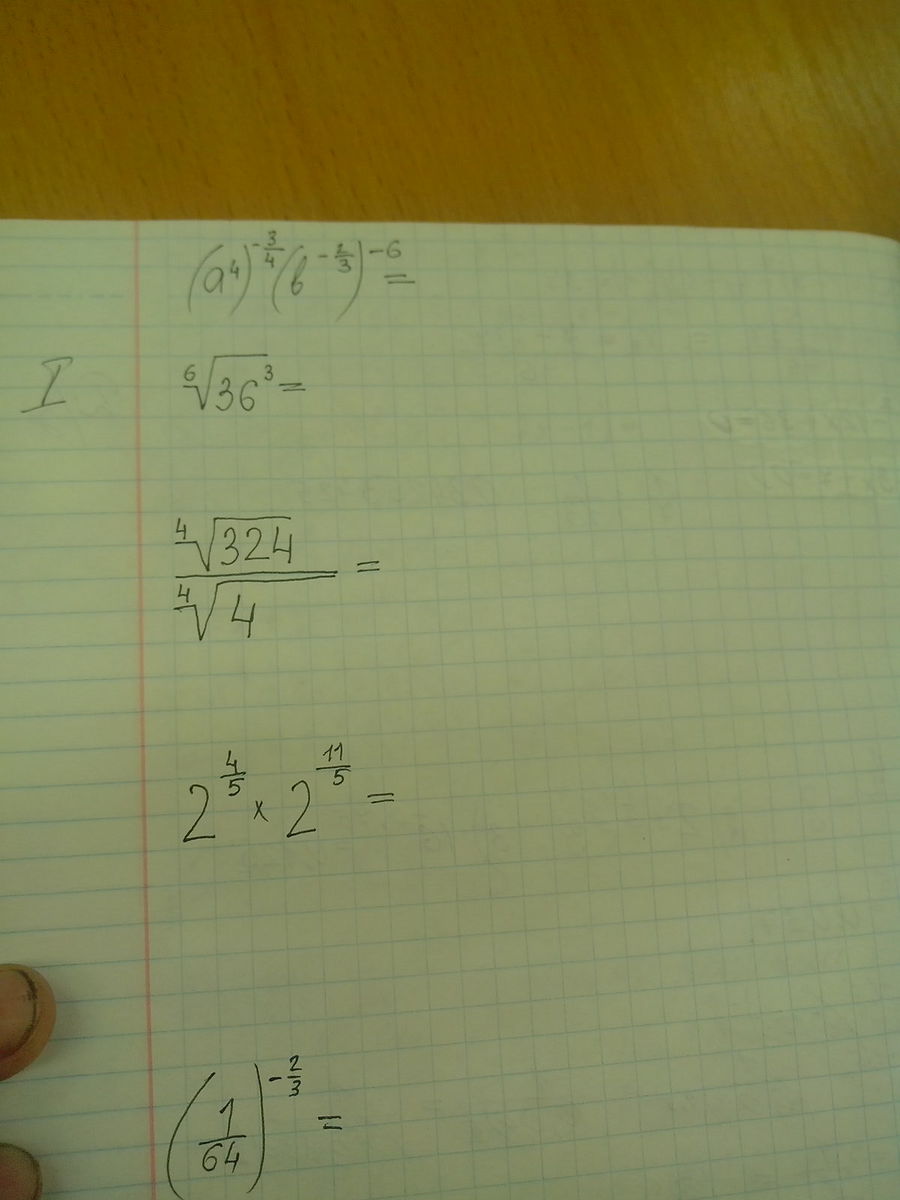 (a⁴)^(-3/4) (b^(-2/3))^(-6) =
I
⁶√(36³) =
⁴√324 / ⁴√4 =
2^(4/5) × 2^(11/5) =
(1/64)^(-2/3) =